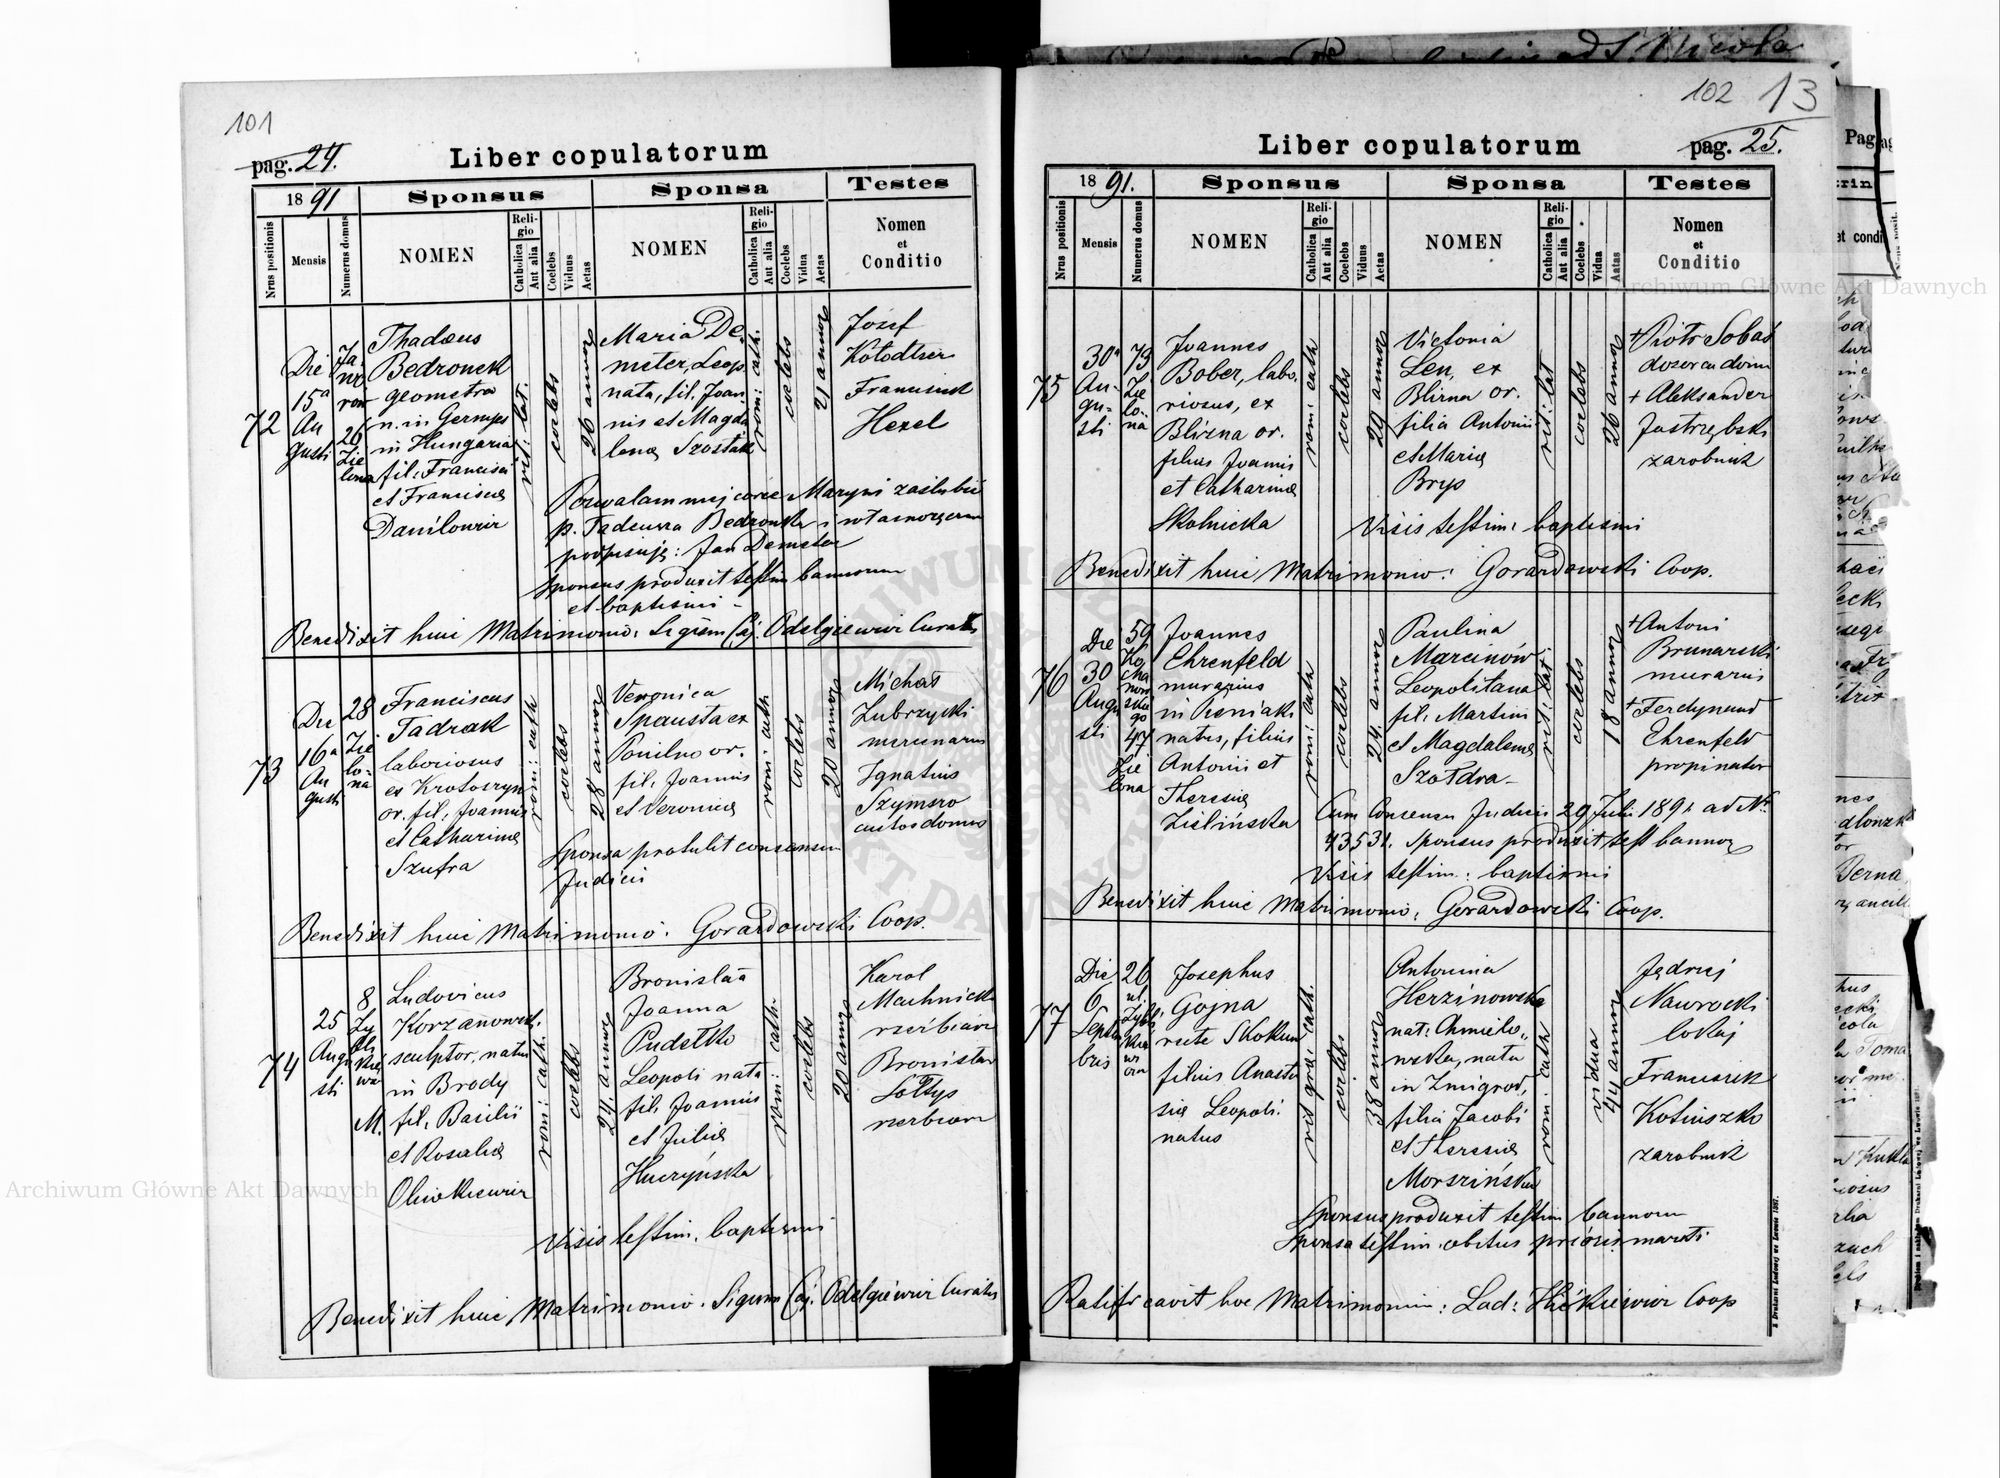 101
pag. 24.
Liber copulatorum
1891
Sponsus
Sponsa
Testes
Nrus positionis
Mensis
Numerus domus
NOMEN
Reli-
gio
Catholica
Aut alia
Coelebs
Viduus
Aetas
NOMEN
Reli-
gio
Catholica
Aut alia
Coelebs
Vidua
Aetas
Nomen
et
Conditio
72
Die
15a
Au
gusti
26
Zie
lona
Thadæus
Bedronek
geometra
n. in Germyes
in Hungaria
fil. Francisci
et Francisca
Danilowicz
rit: lat.
coelebs
26 annor
Maria De
meter, Leop.
nata, fil. Joan
nis et Magda
lena Szostak
rom: cath.
coelebs
21 annor
Józef
Kołodziej
Franciszek
Hexel
Pozwalam mej córce Maryni zaślubić
p. Tadeusza Bedronka i własnoręcznie
podpisuję: Jan Demeter
Sponsus produxit testim bannorum
et baptismi -
Benedixit huic Matrimonio: Sigism Caj. Odelgiewicz Curatus
73
Die
16a
Au
gusti
28
Zie
lo-
na
Franciscus
Tadrak
laboriosus
ex Krotoszyn
or. fil. Joannis
et Catharina
Szufra
rom: cath
coelebs
28 annor
Veronica
Spausta ex
or.
fil. Joannis
et Veronica
rom: cath
coelebs
20 annor
Michał
Zubrzycki
mercenarius
Ignatius
Szymsro
custos domus
Sponsa protulit consensum
Judicii
Benedixit huic Matrimonio: Gorardowski Coop.
74
25
Augu
sti
8
Zy
bli
kie
wi
M.
Ludovicus
Korzanowski
sculptor, natus
in Brody
fil. Basilii
et Rosalia
Oliwkiewicz
rom: cath.
coelebs
24. annor
Bronisława
Joanna
Pudełko
Leopoli nata
fil. Joannis
et Julia
Huczyńska
rom: cath.
coelebs
20 annor
Karol
Machnicki
rzeźbiarz
Bronisław
Sołtys
rzeźbiarz
Visis testim. baptismi
Benedixit huic Matrimonio. Sigism Caj. Odelgiewicz Curatus
102 13
pag. 25.
Liber copulatorum
1891.
Sponsus
Sponsa
Testes
Nrus positionis
Mensis
Numerus domus
NOMEN
Reli-
gio
Catholica
Aut alia
Coelebs
Viduus
Aetas
NOMEN
Reli-
gio
Catholica
Aut alia
Coelebs
Vidua
Aatas
Nomen
et
Conditio
75
30a
Au-
gu-
sti
79
Zie
lo-
na
Joannes
Bober, labo.
riosus, ex
Blizna or.
filius Joannis
et Catharina
Skolnicka
rom: cath
coelebs
29 annor
Victoria
Len, ex
Blizna or.
filia Antonii
et Maria
Brys
rit: lat
coelebs
26 annor
+ Piotr Sobaś
dozorca domu
+ Aleksander
Jastrzębski
zarobnik
Visis testim: baptismi
Benedixit huic Matrimonio: Gorardowski Coop.
76
Die
30
Augu
sti
59
Ko
cha
now
skie
go
47
Zie
lona
Joannes
Ehrenfeld
murarius
in Pieniaki
natus, filius
Antonii et
Theresia
Zielińska
rom: cath
coelebs
24. annor
Paulina
Marcinów
Leopolitana
fil. Martini
et Magdalena
Szołdra-
rit: lat.
coelebs
18 annor
+ Antoni
Brunarski
murarus
+ Ferdynand
Ehrenfeld
propinator
Cum Consensu Judicii 29 Julii 1891 ad Nr
43531. Sponsus produxit test bannor
Visis testim: baptismi
Benedixit huic Matrimonio: Gorardowski Coop.
77
Die
6
Septem
bris
26
ul.
Zybli
kie
wi
cza
Josephus
Gojna
recte Skokun
filius Anasta
sia Leopoli
natus
rit græ: cath.
coelebs
38 annor
Antonina
Herzinowska
nat: Chmielo„
wska, nata
in Zmigrod,
filia Jacobi
et Theresia
Morszińska
rom: cath
vidua
44 annor
Jędrzej
Nawrocki
lokaj
Franciszek
Kościuszko
zarobnik
Sponsus produxit testim bannorum
Sponsa testim. obitus prioris mariti
Ratificavit hoc Matrimonium: Lad: Hickiewicz Coop
A Drukarni Ludowej we Lwowie 1887.
Archiwum Główne Akt Dawnych
Archiwum Główne Akt Dawnych